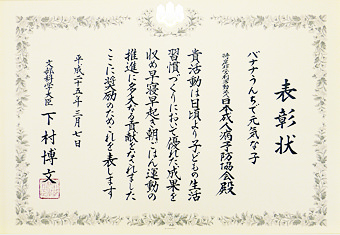 表彰状
バナナうんちで元気な子
特定非営利活動法人日本成人病予防協会殿
貴活動は日頃より子どもの生活
習慣づくりにおいて優れた成果を
収め早寝早起き朝ごはん運動の
推進に多大な貢献をなされました
ここに奨励のためこれを表します
平成二十五年三月七日
文部科学大臣 下村博文